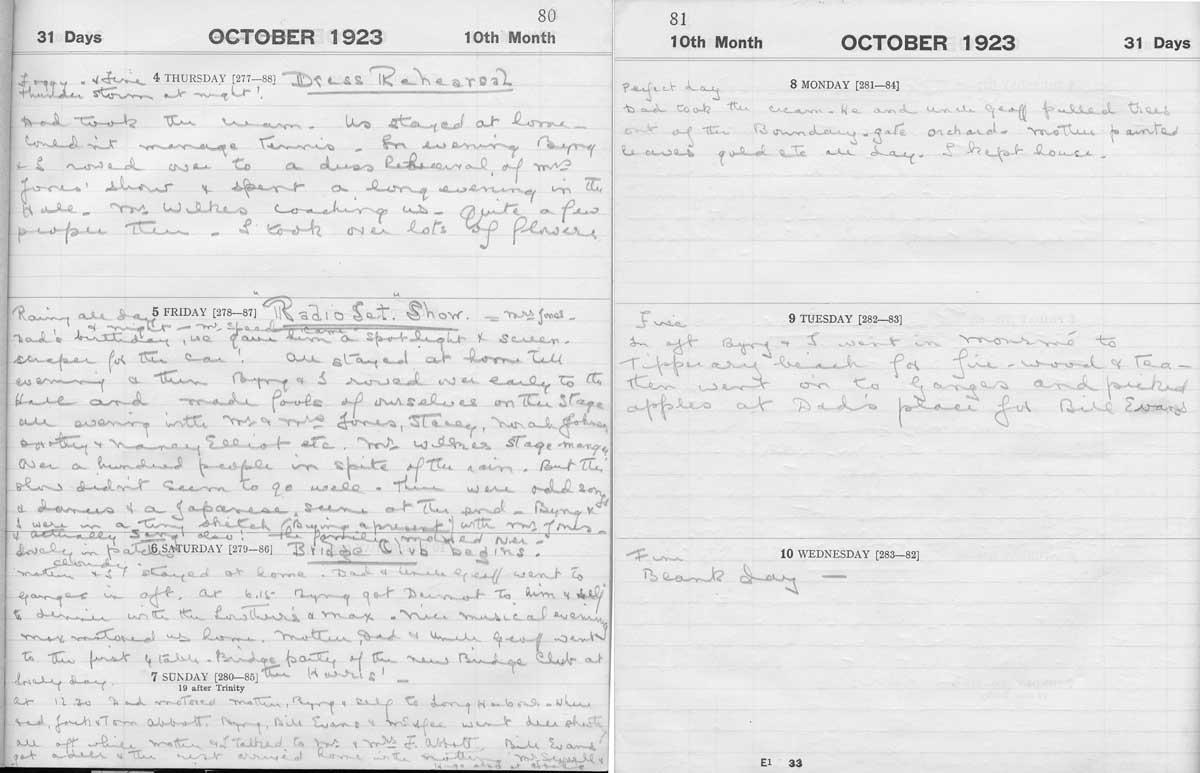 80
31 Days OCTOBER 1923 10th Month
Foggy - & Fine 4 THURSDAY [277—88] Dress Rehearsal
Thunder storm at night!
Dad took the cream. Us stayed at home -
Couldn't manage tennis. In evening Byng
& I rowed over to a dress Rehearsal of Mrs
Jones' show & spent a long evening in the
Hall. Mrs Wilkes coaching us. Quite a few
people there. I took over lots of flowers
Rainy all day 5 FRIDAY [278—87] "Radio Set." Show. - Mrs Jones.
& night - Mr Speed came
Dad's birthday, we gave him a spotlight & screen-
scraper for the car! All stayed at home till
evening & then Byng & I rowed over early to the
Hall and made fools of ourselves on the Stage
all evening with Mr & Mrs Jones, Stacey, Norah
& Nancy Elliot etc. Mrs Wilkes stage-manager
Over a hundred people in spite of the rain. But the
show didn't seem to go well. There were odd songs
& dances & a Japanese scene at the end - Byng &
I were in a tiny sketch (Buying a present) with Mrs Jones -
& actually sang also! The family motored over -
Lovely in patches 6 SATURDAY [279—86] Bridge Club begins.
cloudy
Mother & I stayed at home. Dad & Uncle Geoff went to
Ganges in aft. At 6.15 Byng got Dermot to him & self
to dinner with the & Max. Nice musical evening
Max motored us home. Mother, Dad & Uncle Geoff went
to the first 4 table - Bridge party of the new Bridge Club at
the Harris'! -
Lovely day. 7 SUNDAY [280—85]
19 after Trinity
At 12.30 Dad motored Mother, Byng & self to Long Harbour - where
Dad, & Tom Abbott, Byng, Bill Evans & went deer
all aft while Mother & I talked to Mrs & Mrs F. Abbott. Bill Evans
got a deer & the rest arrived home with nothing.
81
10th Month OCTOBER 1923 31 Days
Perfect day 8 MONDAY [281—84]
Dad took the cream. He and Uncle Geoff pulled trees
out of the Boundary-gate orchard. Mother painted
leaves gold etc all day. I kept house.
Fine 9 TUESDAY [282—83]
In aft Byng & I went in to
Tipperary beach for fire-wood & tea -
then went on to Ganges and picked
apples at Dad's place for Bill Evans
Fine 10 WEDNESDAY [283—82]
Blank day —
E1 33